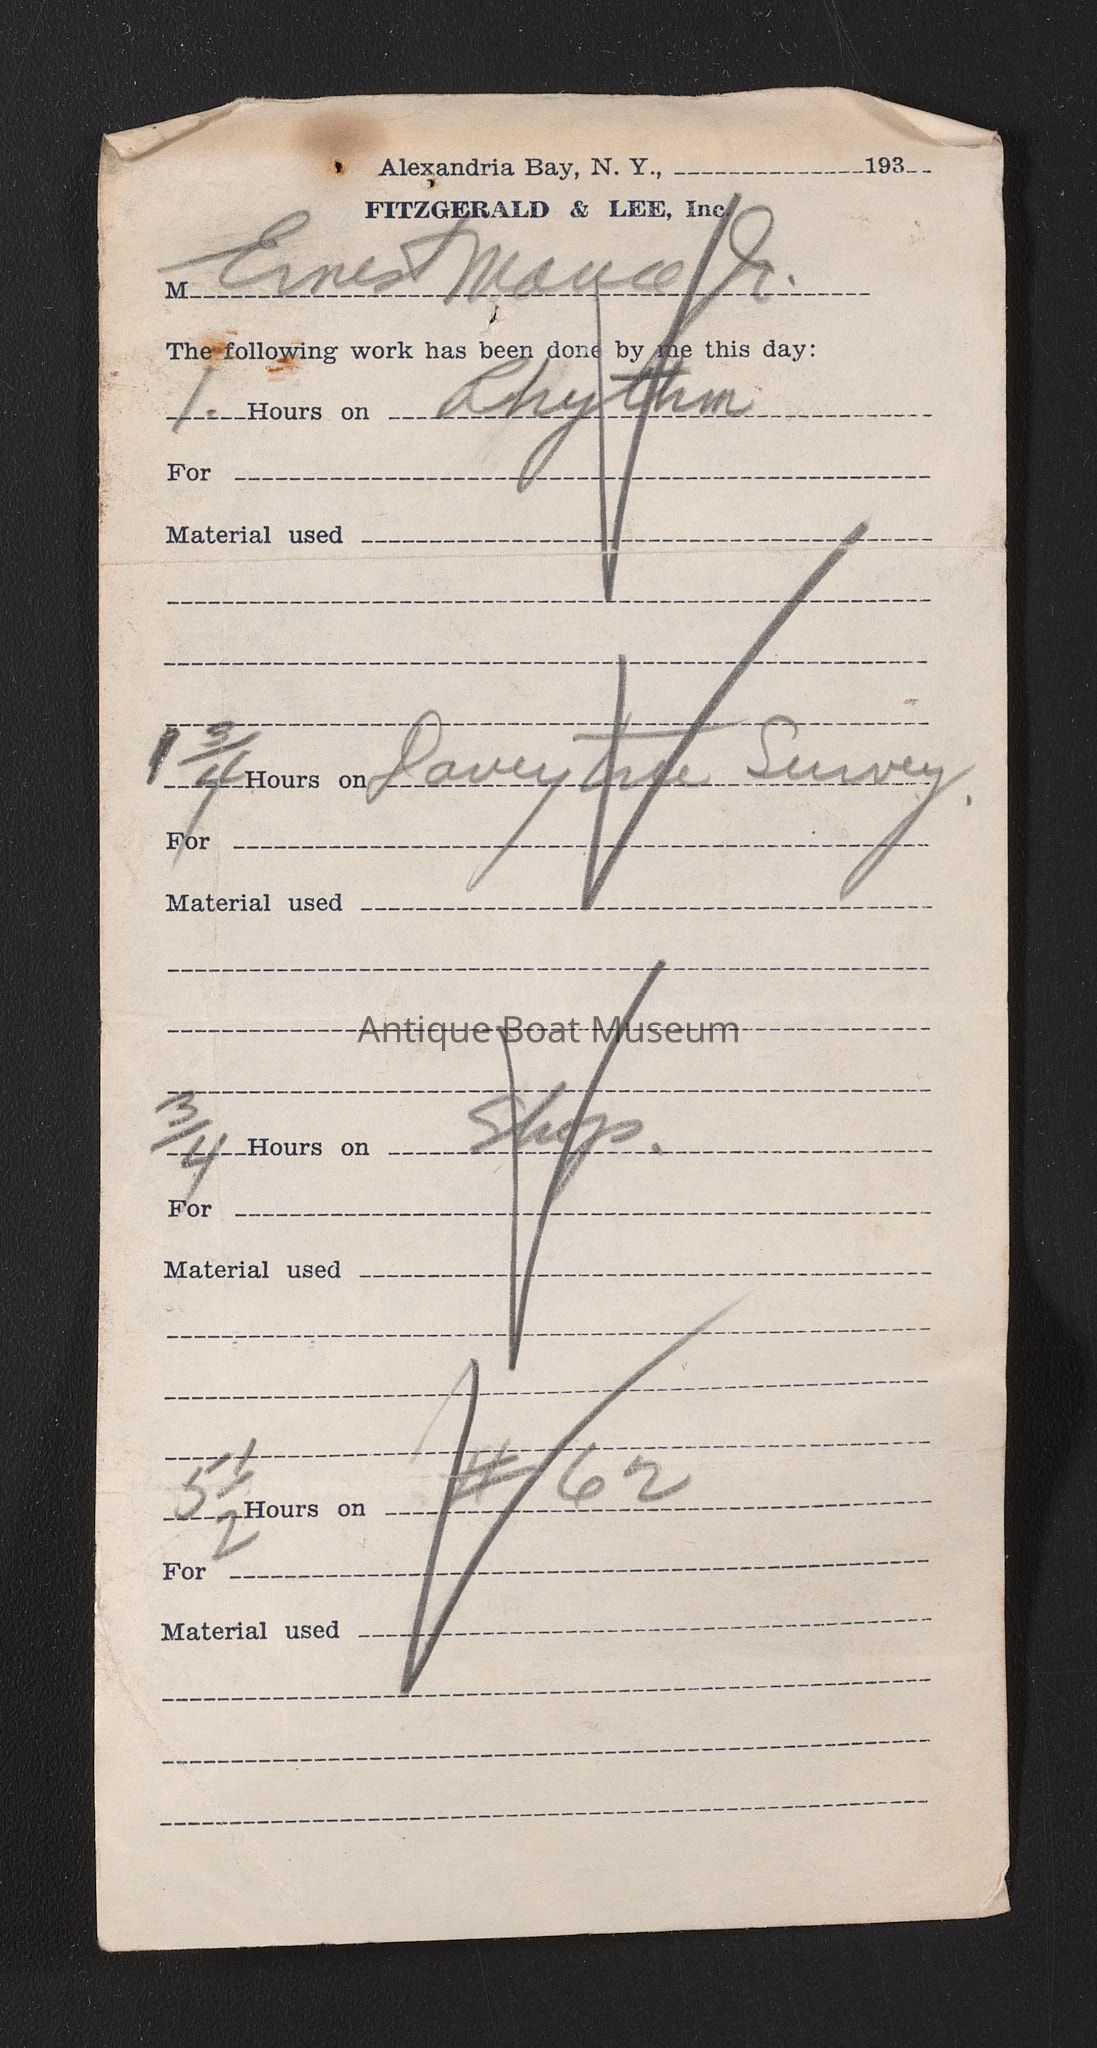 Alexandria Bay, N. Y., 193
FITZGERALD & LEE, Inc.
M Ernest Jr.
The following work has been done by me this day:
1. Hours on Rhythm
For
Material used
1 3/4 Hours on Davey tree Survey.
For
Material used
Antique Boat Museum
3/4 Hours on Shop.
For
Material used
5 1/2 Hours on # 62
For
Material used